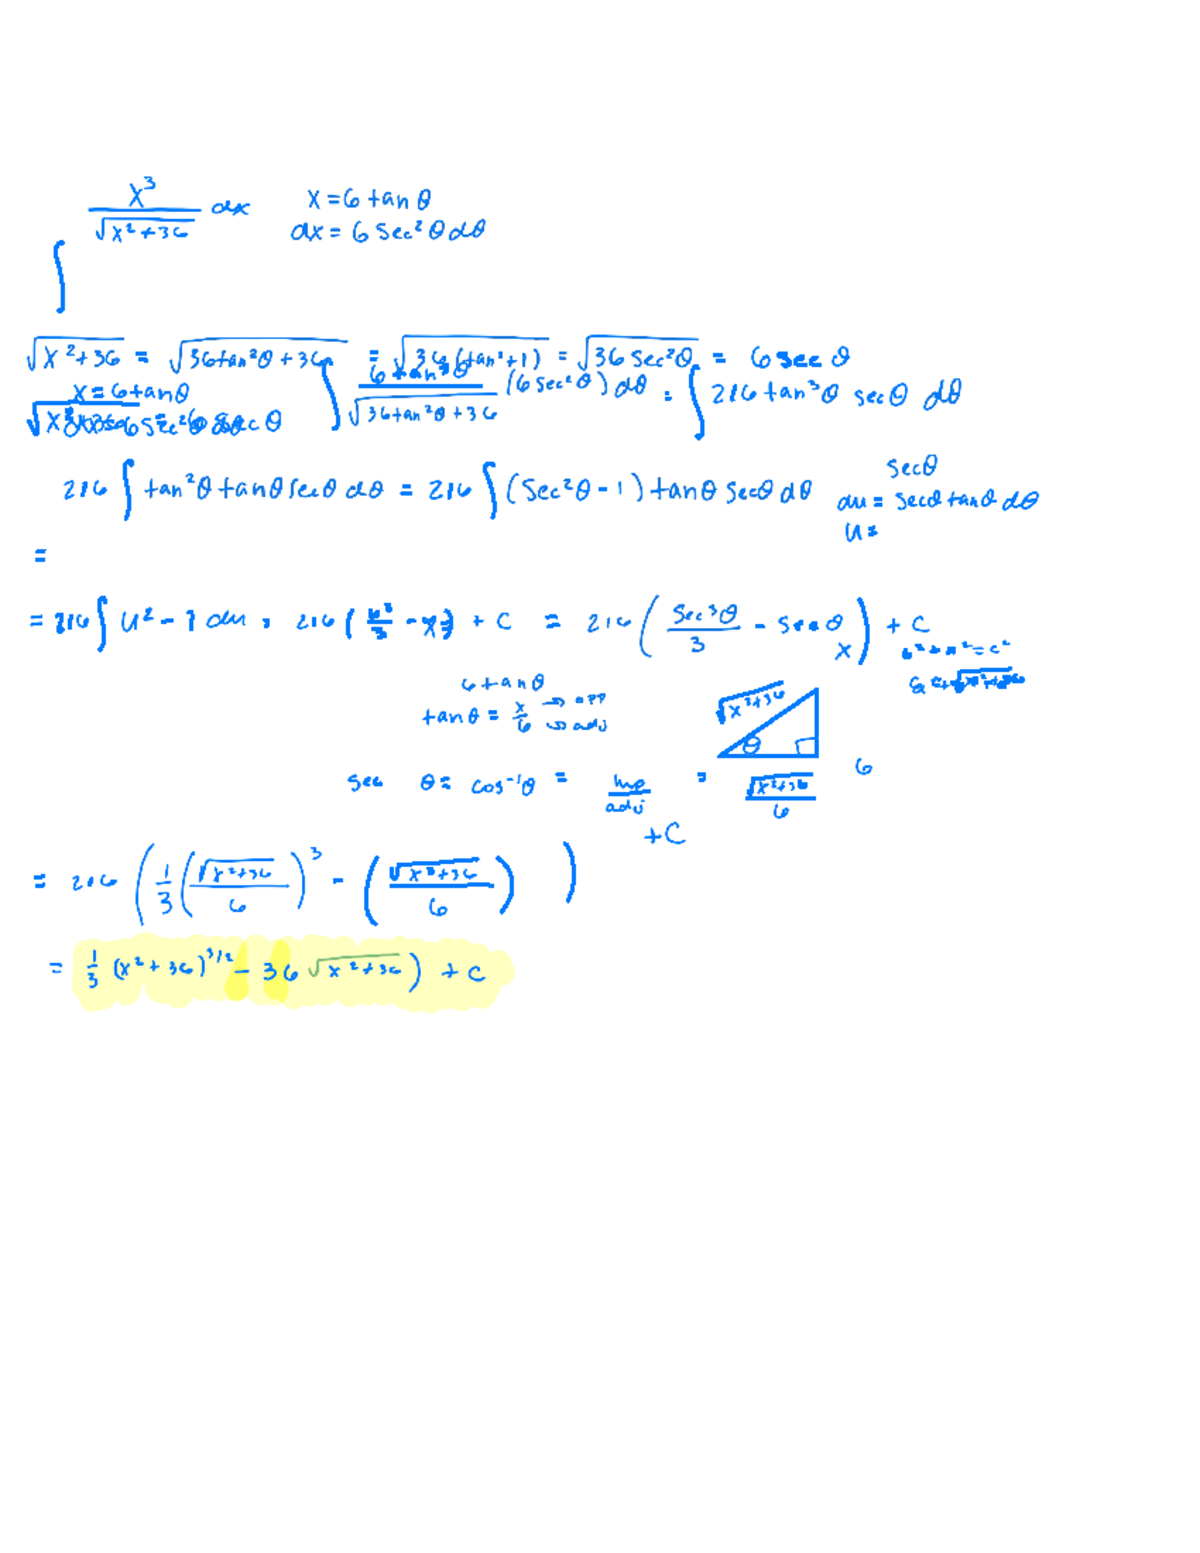 ∫ x³/√(x²+36) dx   x = 6 tan θ
dx = 6 sec² θ dθ
√(x²+36) = √(36tan²θ + 36) = √(36(tan²+1)) = √(36 sec²θ) = 6 sec θ
x = 6 tan θ   ∫ 6 tan³θ/√(36tan²θ + 36) (6 sec²θ) dθ = ∫ 216 tan³θ secθ dθ
216 ∫ tan²θ tanθ secθ dθ = 216 ∫ (sec²θ - 1) tanθ secθ dθ   secθ
du = secθ tanθ dθ
u =
=
= 216 ∫ u² - 1 du = 216 ( u³/3 - ) + C = 216 ( sec³θ/3 - sec θ ) + C
x
6 tan θ
tan θ = x/6 → opp → adj   √(x²+36)   θ
6
sec θ = cos⁻¹θ = hyp/adj = √(x²+36)/6
+ C
= 216 ( 1/3 ( √(x²+36)/6 )³ - ( √(x²+36)/6 ) )
= 1/3 (x² + 36)^3/2 - 36 √(x²+36) ) + C